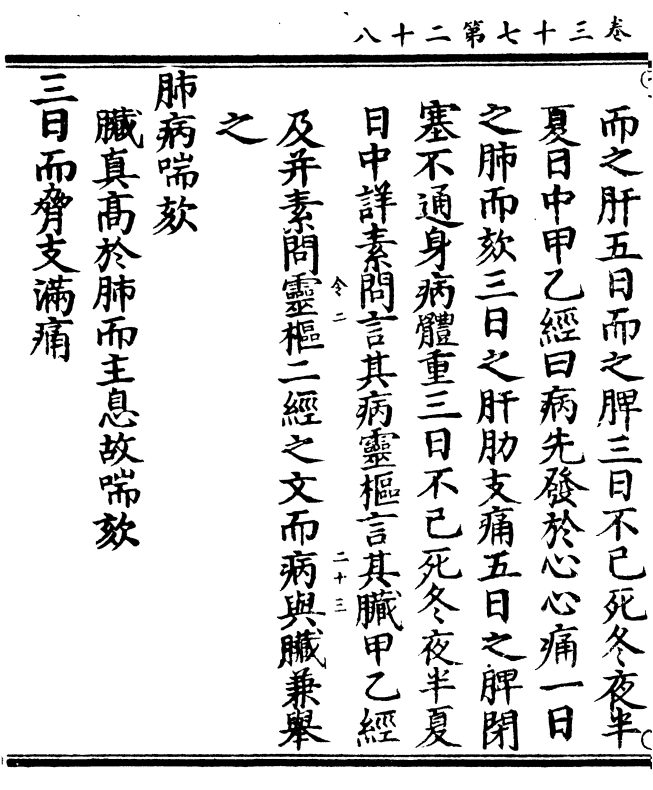 卷三十七第二十八
而之肝五日而之脾三日不已死冬夜半
夏日中甲乙經曰病先發於心心痛一日
之肺而欬三日之肝肋支痛五日之脾閉
塞不通身病體重三日不已死冬夜半夏
日中詳素問言其病靈樞言其臟甲乙經
令二
二十三
及并素問靈樞二經之文而病與臟兼舉
之
肺病喘欬
臟真高於肺而主息故喘欬
三日而脅支滿痛